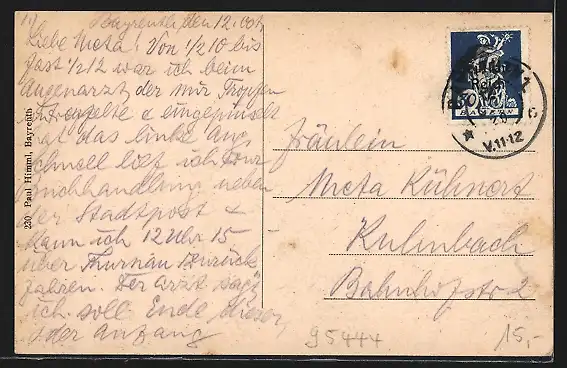 1)
Bayreuth, den 12. Okt.
Liebe Meta! Von ½10 bis
fast ½12 war ich beim
Augenarzt der mir Tropfen
& eingepinselt
hat das linke Aug,
schnell ich zur
Buchhandlung neben
der Stadtpost &
kann ich 12 Uhr 15
über Thurnau zurück
fahren. Der Arzt sagt
ich soll Ende dieser
oder Anfang
230 Paul Himml, Bayreuth
BAYERN
V.11-12
Fräulein
Meta Kühnert
Kulmbach
Bahnhofstr 2
95444
15,-